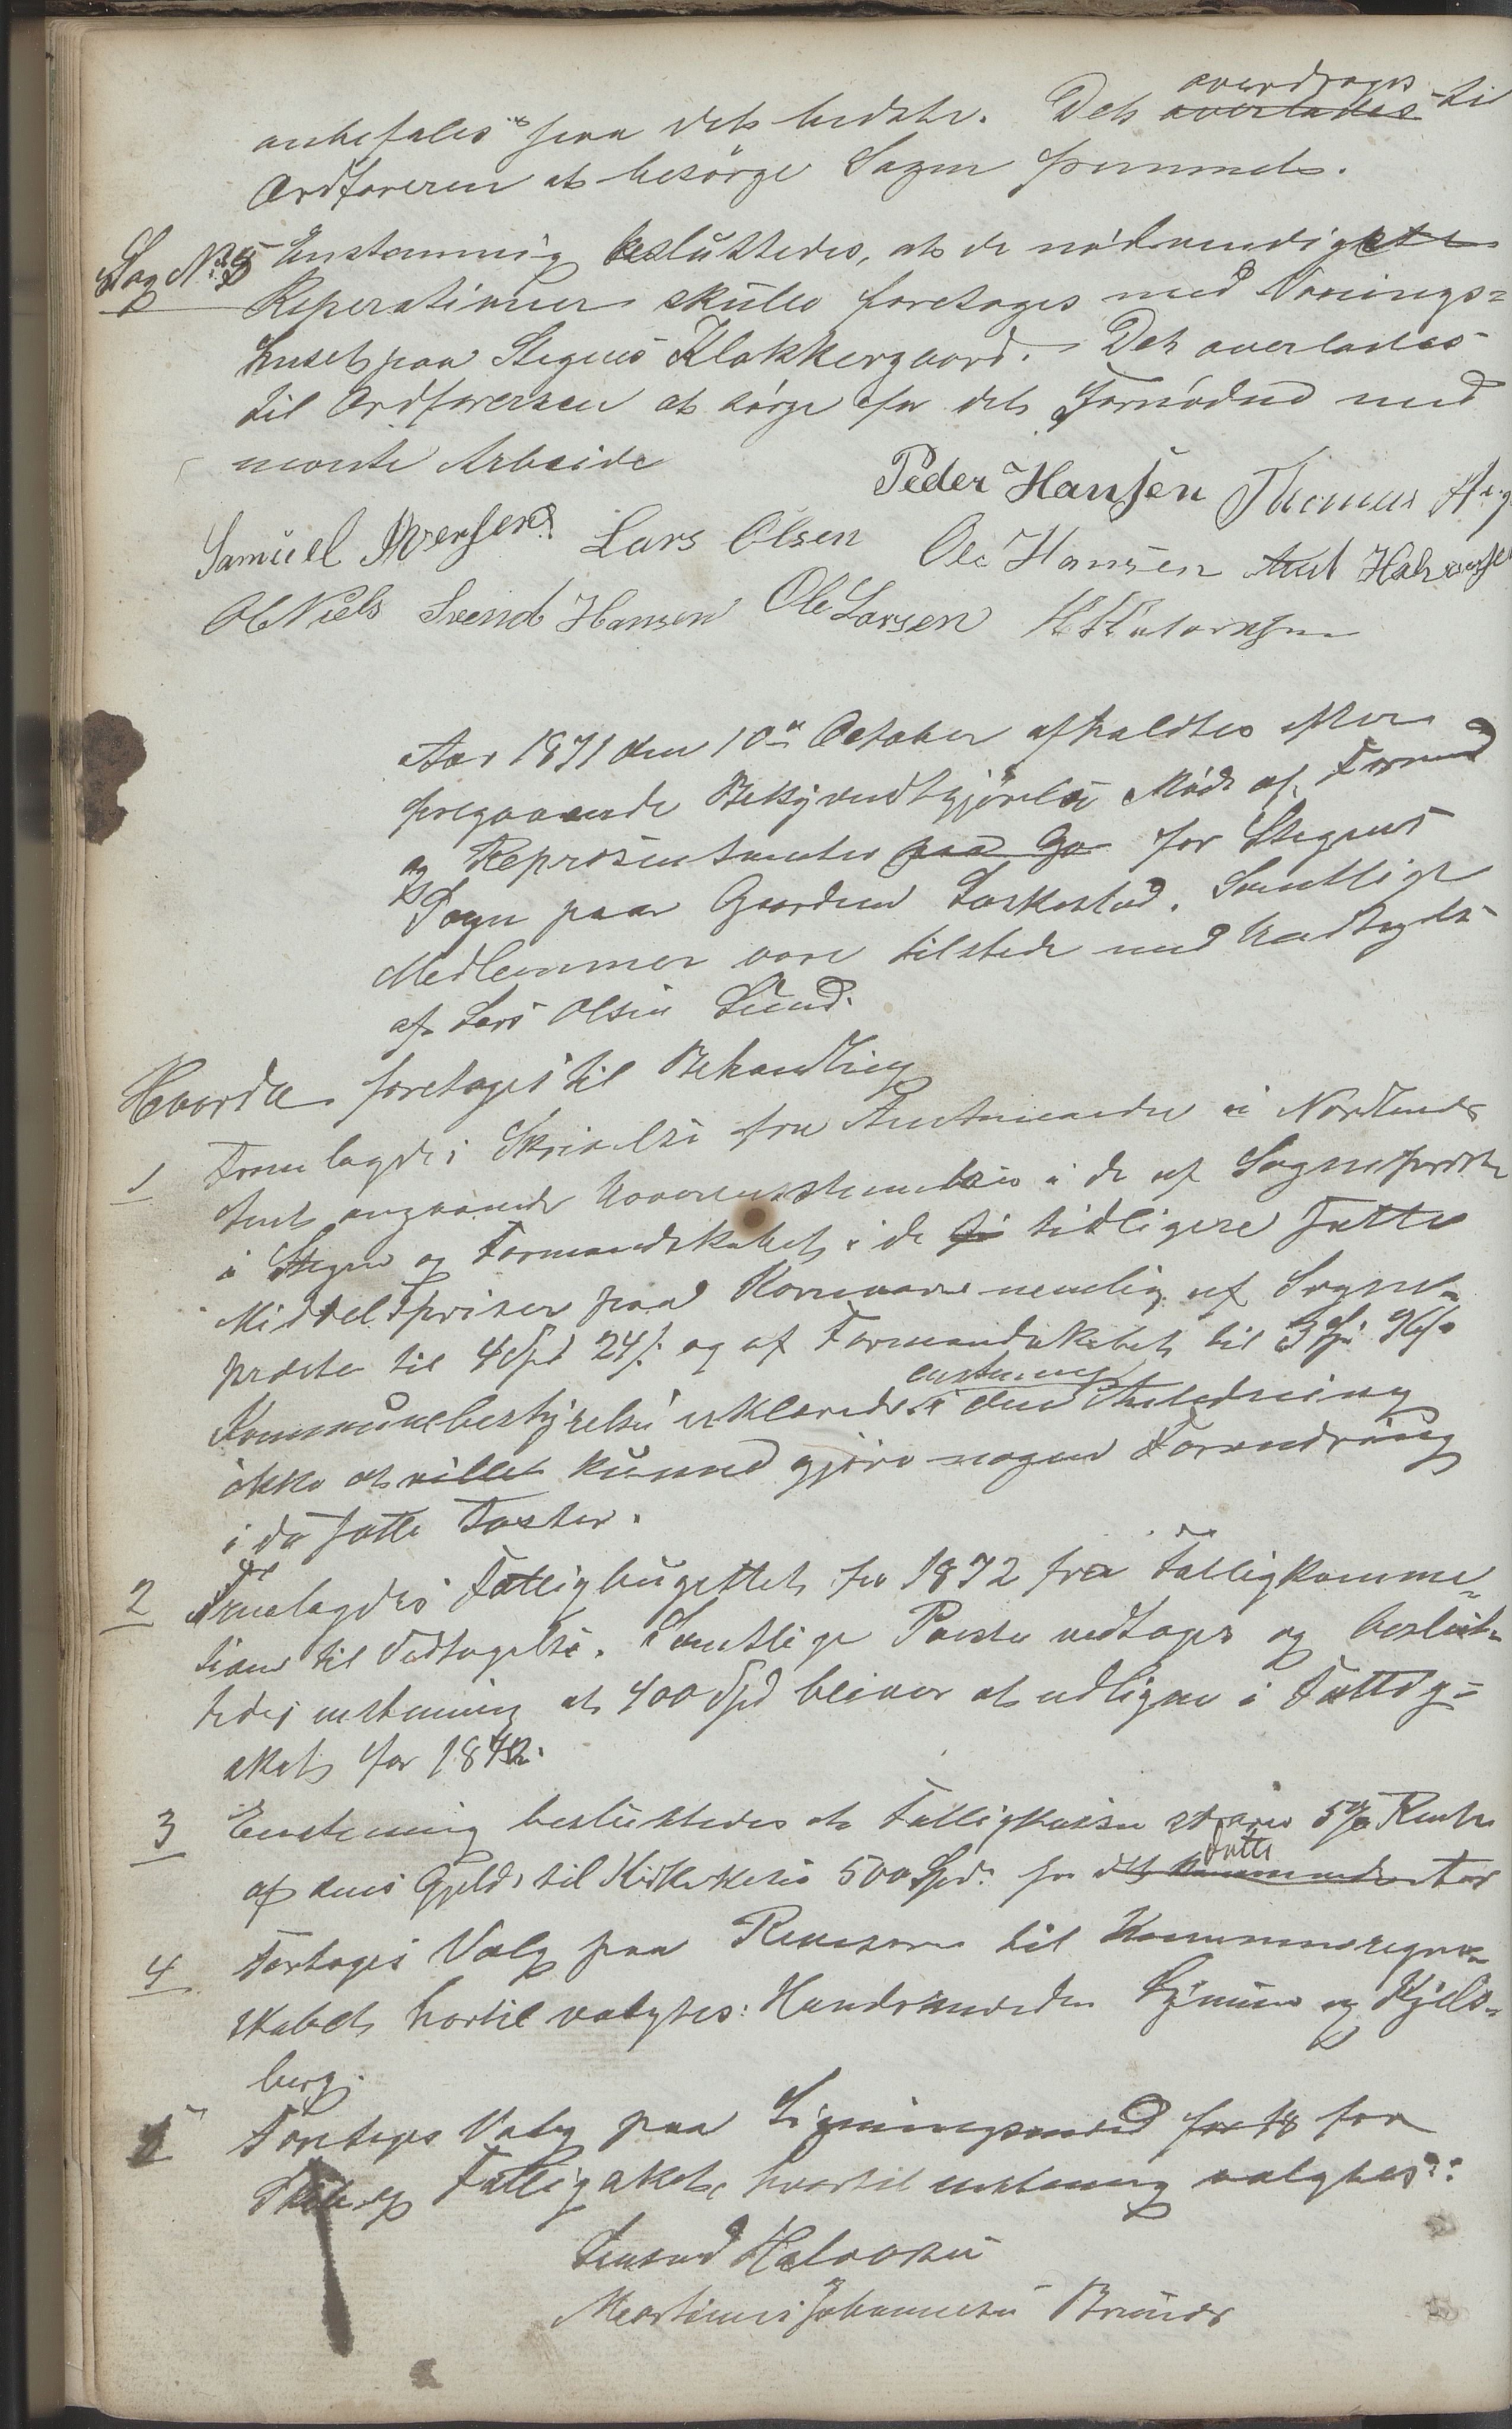 anbefales paa det bedste. Det overdrages overlades til
Ordføreren at besørge Sagen fremmet.
Sag No 5 Enstemmig besluttedes, at de nødvendigste
Reperationer skulle foretages med Vonings=
huset paa Stegens Klokkergaard. Det overlades
til Ordføreren at sørge for det Fornødne med
nevnte Arbeide
Peder Hansen Thomas
Samuel Iversen Lars Olsen Ole Hansen Amt Halvorsen
Ol Niels Svend Hansen Ole Larsen
Aar 1871 den 10de October afholdtes efter
foregaaende Bekjendtgjørelse Møde af Formænd
og Repræsentanter paa Ga for Stegens
Sogn paa Gaarden Laskestad. Samtlige
Medlemmer vare tilstede med Undtagelse
af Lars Olsen Sund.
Hvorda foretoges til Behandling
1 Fremlagdes Skrivelse fra Amtmanden i Nordlands
Amt angaaende Uoverensstemmelse i de af Sognepresten
i Stegen og Formandskabet i de tidligere satte
Middelspriser paa Kornvare nemlig af Sogne-
præsten til 4 Spd 24 s. og af Formandskabet til 3 Spd 96 s.
Kommunebestyrelsen erklærede enstemmig i den Anledning
ikke at villet kunne gjøre nogen Forandring
i de satte Taxter.
2 Fremlagdes Fattigbugettet for 1872 fra Fattigkommi-
sionen til Vedtagelse. Samtlige Poster vedtoges og beslut-
tedes enstemmig at 400 Spd bliver at udligne i Fattig=
skat for 1872.
3 Enstemmig besluttedes at Fattigkassen svarer 5 % Rente
af dens Gjeld til Kirkekassen 500 Spd. for det kommende dette Aar
4 Fortoges Valg paa Revisorer til Kommuneregn-
skabet hertil valgtes: Handelsmændene og Kjels-
berg.
5 Foretoges Valg paa Ligningsmænd for 18 for
Skole og Fattigskat, hvortil enstemmig valgtes:
Amund Halvorsen
Martinus Johannesen Brunes